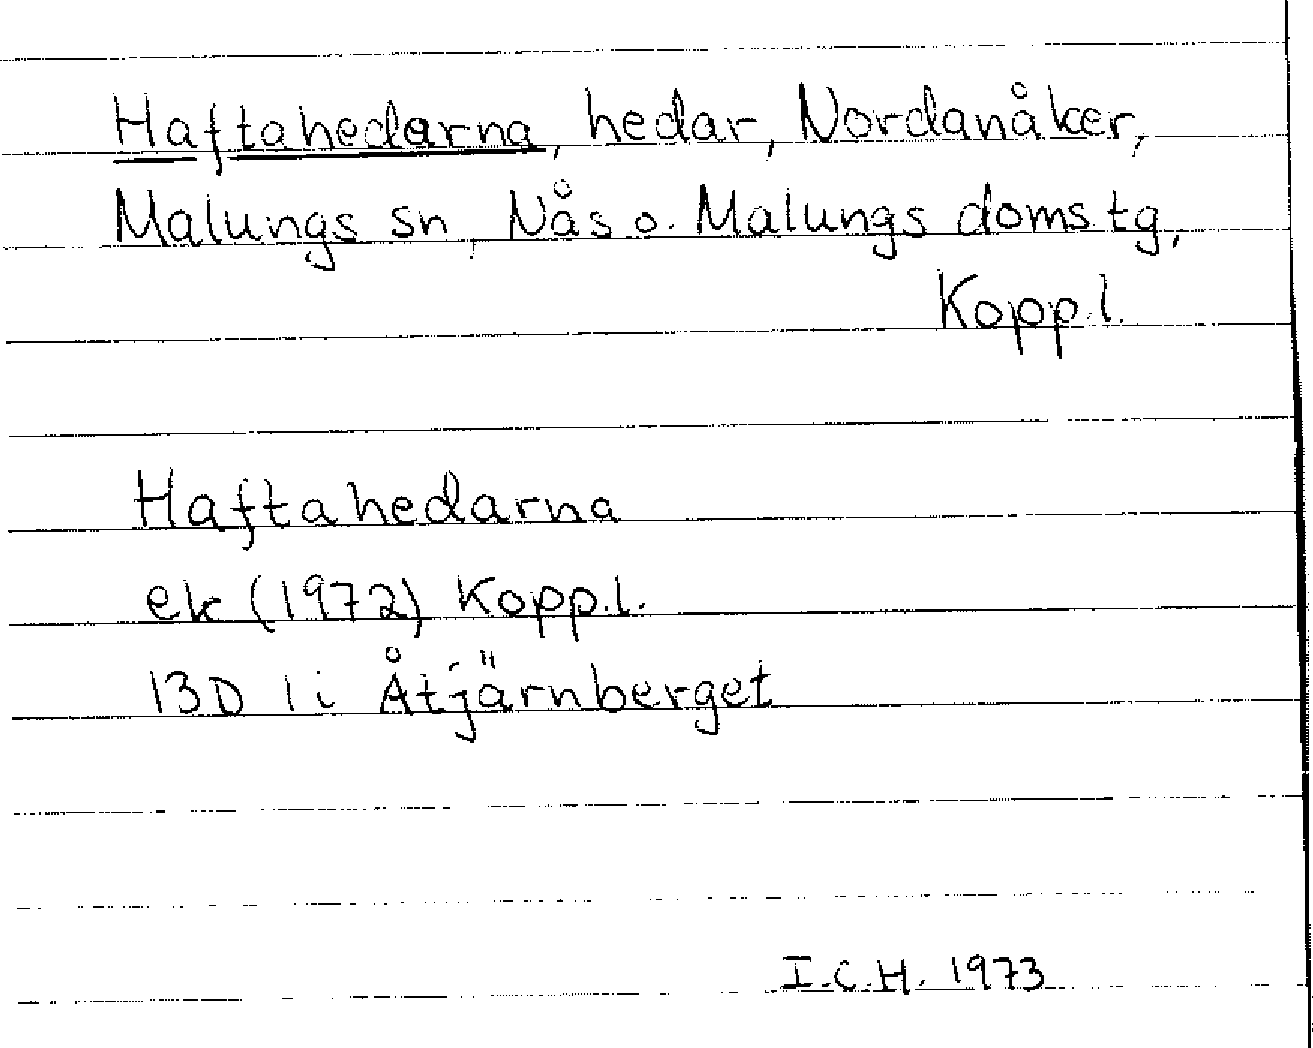 Haftahedarna, hedar, Nordanåker,
Malungs sn, Nås o. Malungs doms.tg,
Kopp.l.
Haftahedarna
ek (1972) Kopp.l.
13D 1i Åtjärnberget
I.C.H. 1973